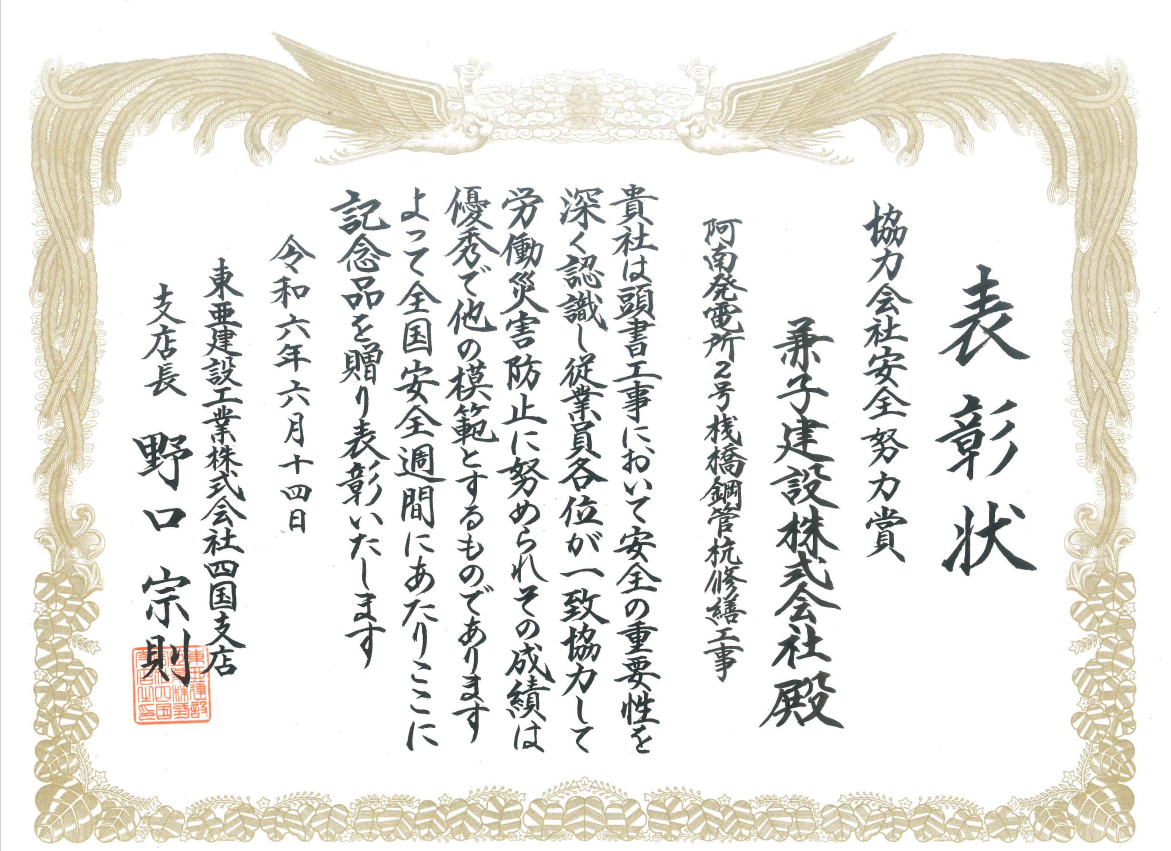 表彰状
協力会社安全努力賞
兼子建設株式会社殿
阿南発電所2号桟橋鋼管杭修繕工事
貴社は頭書工事において安全の重要性を
深く認識し従業員各位が一致協力して
労働災害防止に努められその成績は
優秀で他の模範とするものであります
よって全国安全週間にあたりここに
記念品を贈り表彰いたします
令和六年六月十四日
東亜建設工業株式会社四国支店
支店長 野口宗則